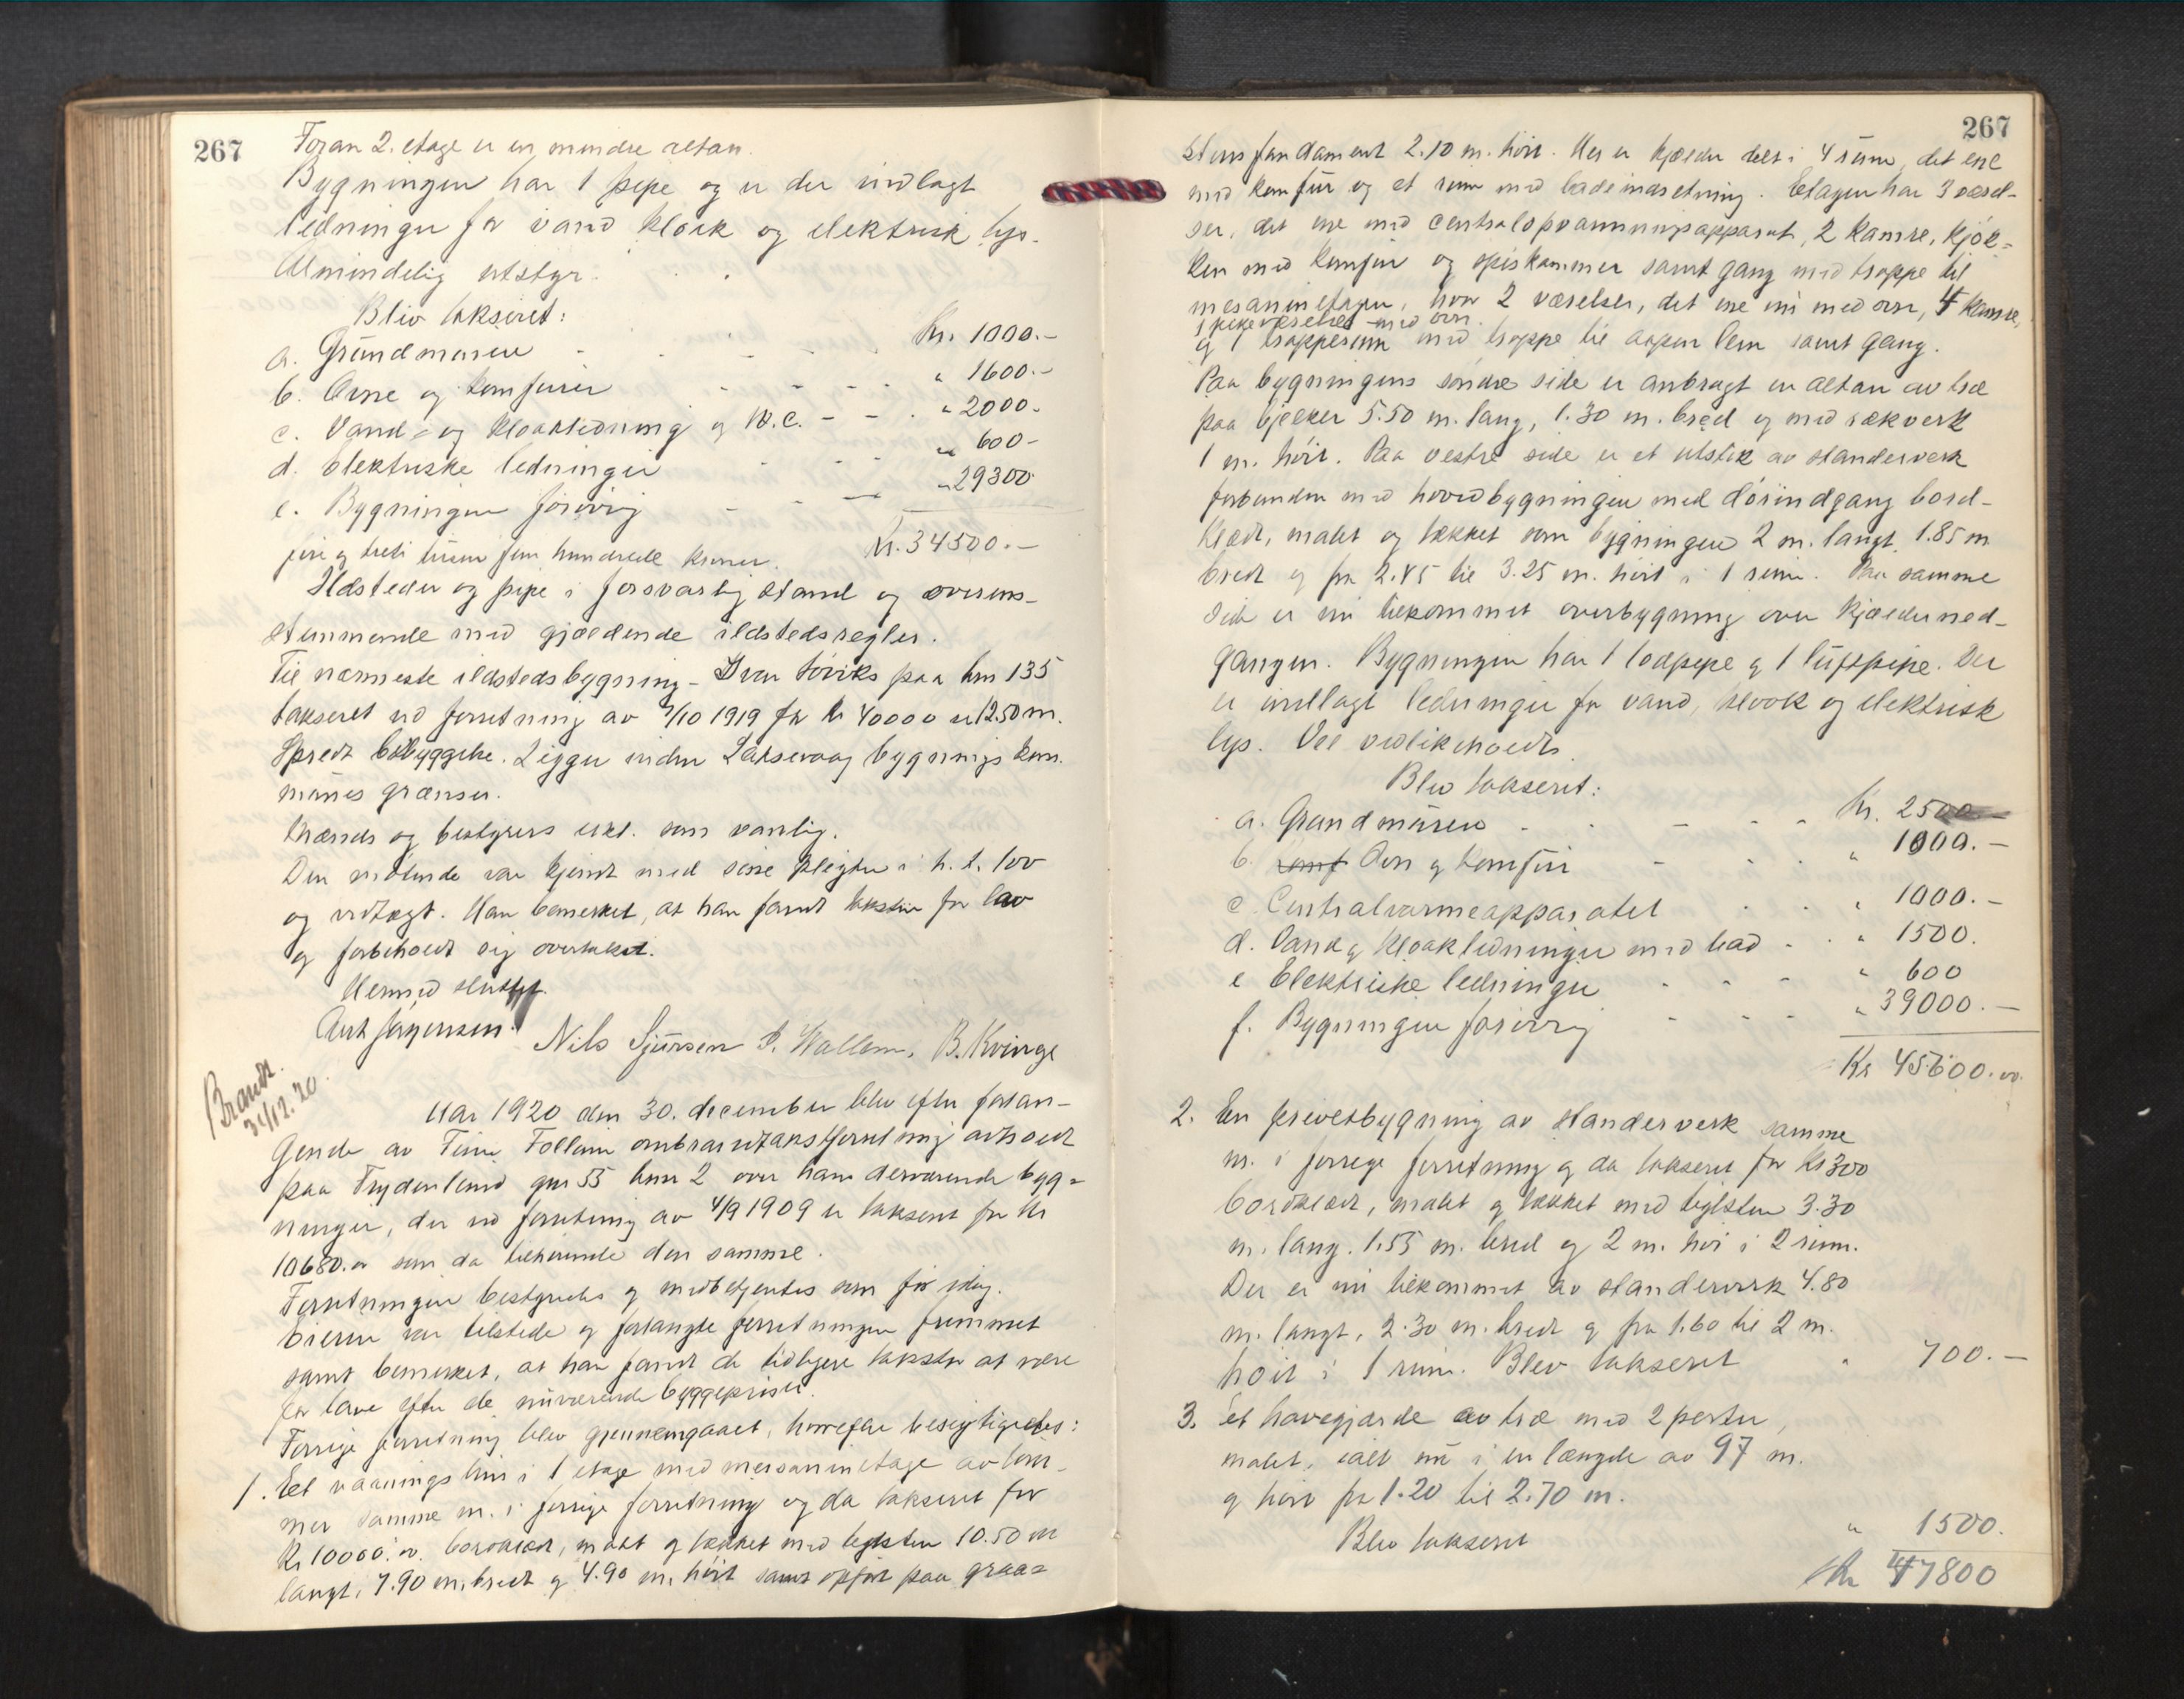 267
Foran 2. etage er en mindre altan.
Bygningen har 1 pipe og er der indlagt
ledninger for vand kloak og elektrisk lys.
Almindelig utstyr.
Blev takseret:
a. Grundmuren - - - - Kr. 1000.-
b. Ovne og komfurer - - - - " 1600.-
c. Vand- og kloakledning og W.C. - - . " 2000.
d. Elektriske ledninger - - - " 600-
e. Bygningen forøvrig - - - " 29300
fire og treti tusen fem hundrede kroner. Kr. 34500.-
Ildsteder og pipe i forsvarlig stand og overens-
stemmende med gjældende ildstedsregler.
Til nærmeste ildstedsbygning - Ivar Løviks paa bnr 135
takseret ved forretning av 7/10 1919 for kr 40000 er 12.50 m.
Spredt bebyggelse. Ligger inden Laksevaag bygningskom.
munes grænser.
Brænds og bestyrers erkl. som vanlig.
Den møtende var kjendt med sine pligter i h. t. lov
og vedtægt. Han bemerket, at han fandt taksten for lav
og forbeholdt sig overtakst.
Hermed sluttet.
Aut Jørgensen. Nils Sjursen P. Wallem. B. Kvinge
Brandt.
31/12.20.
Aar 1920 den 30. december blev efter forlan-
gende av Tim Follem ombrandtakstforretning avholdt
paa Frydenlund gnr 55 bnr 2 over hans derværende byg-
ninger, der ved forretning av 4/9 1909 er takseret for kr
10680.00 som da tilhørende den samme.
Forretningen bestyredes og medbetjentes som før idag.
Eieren var tilstede og forlangte forretningen fremmet
samt bemerket, at han fandt de tidligere takster at være
for lave efter de nuværende byggepriser.
Forrige forretning blev gjennemgaaet, hvorefter besigtigedes:
1. Et vaaningshus i 1 etage med mesaninetage av tøm-
mer samme nr. i forrige forretning og da takseret for
Kr 10000.00. bordklædt, malt og tækket med teglsten 10.50 m
langt, 7.90 m. bredt og 4.90 m. høit samt opført paa graa-
267
stens fundament 2.10 m. høit. Her er kjælder delt i 4 rum, det ene
med komfur og et rum med badeindretning. Etagen har 3 værel-
ser, det ene med centralopvarmningsapparat, 2 kamre, kjøk-
ken med komfur og spiskammer samt gang med trappe til
mesaninetagen, hvor 2 værelser, det ene nu med ovn, 4 kamre,
1 pikeværelset med ovn.
og 1 trapperum med trappe til aapen lem samt gang.
Paa bygningens søndre side er anbragt en altan av træ
paa bjelker 5.50 m. lang, 1.30 m. bred og med rækverk
1 m. høit. Paa vestre side er et utstik av standerverk
forbunden med hovedbygningen med dørindgang bord-
klædt, malet og tækket som bygningen 2 m. langt, 1.85 m
bredt og fra 2.45 til 3.25 m. høit i 1 rum. Paa samme
side er nu tilkommet overbygning over kjælderned-
gangen. Bygningen har 1 lodpipe og 1 luftpipe. Der
er indlagt ledninger for vand, kloak og elektrisk
lys. Vel vedlikeholdt.
Blev takseret:
a. Grundmuren - - - - Kr. 2500 -
b. Komf Ovn og komfur - - - " 1000.-
c. Centralvarmeapparatet . . " 1000.-
d. Vand og kloakledninger med bad - . " 1500.
e Elektriske ledninger - - - " 600
f. Bygningen forøvrig - - - " 39000.-
Kr 45600.00.
2. En privetbygning av standerverk samme
nr. i forrige forretning og da takseret for Kr 300
bordklædt, malet og tækket med teglsten 3.30
m. lang. 1.55 m. bred og 2 m. høi i 2 rum.
Der er nu tilkommet av standerverk 4.80
m. langt, 2.30 m. bredt og fra 1.60 til 2 m.
høit i 1 rum. Blev takseret " 700.-
3. Et havegjærde av træ med 2 porter,
malet, ialt nu i en længde av 97 m.
og høit fra 1.20 til 2.70 m.
Blev takseret " 1500.
Kr 47800